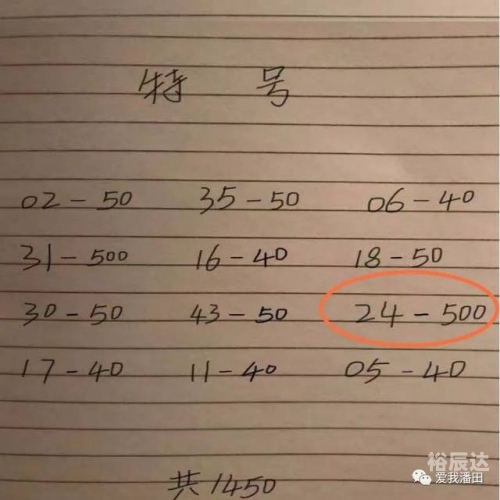 特 号
02-50 35-50 06-40
31-500 16-40 18-50
30-50 43-50 24-500
17-40 11-40 05-40
共1450
裕辰达
爱我潘田